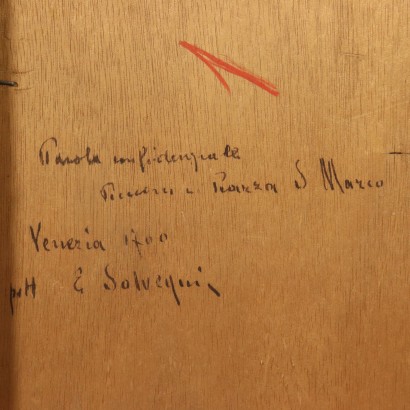 Parola confidenziale
Piazza S Marco
Venezia 1700
pitt E Salvegni